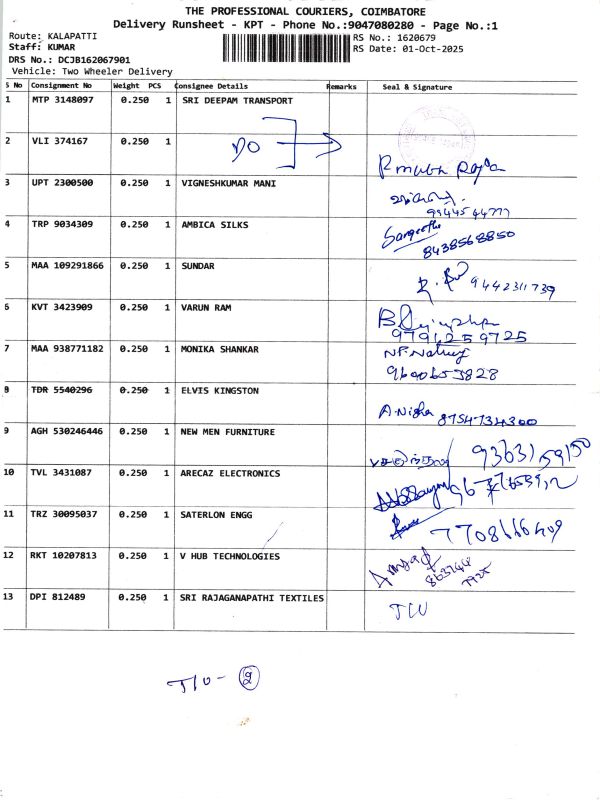 THE PROFESSIONAL COURIERS, COIMBATORE
Delivery Runsheet - KPT - Phone No.:9047080280 - Page No.:1
Route: KALAPATTI RS No.: 1620679
Staff: KUMAR RS Date: 01-Oct-2025
DRS No.: DCJB162067901
Vehicle: Two Wheeler Delivery
S No Consignment No Weight PCS Consignee Details Remarks Seal & Signature
1 MTP 3148097 0.250 1 SRI DEEPAM TRANSPORT
2 VLI 374167 0.250 1 DO
3 UPT 2300500 0.250 1 VIGNESHKUMAR MANI
4 TRP 9034309 0.250 1 AMBICA SILKS Sangeetha
8438568850
5 MAA 109291866 0.250 1 SUNDAR 9442311739
6 KVT 3423909 0.250 1 VARUN RAM
9791259725
7 MAA 938771182 0.250 1 MONIKA SHANKAR
8 TDR 5540296 0.250 1 ELVIS KINGSTON A.Nisha 8754734300
9 AGH 530246446 0.250 1 NEW MEN FURNITURE
10 TVL 3431087 0.250 1 ARECAZ ELECTRONICS
11 TRZ 30095037 0.250 1 SATERLON ENGG
12 RKT 10207813 0.250 1 V HUB TECHNOLOGIES
13 DPI 812489 0.250 1 SRI RAJAGANAPATHI TEXTILES